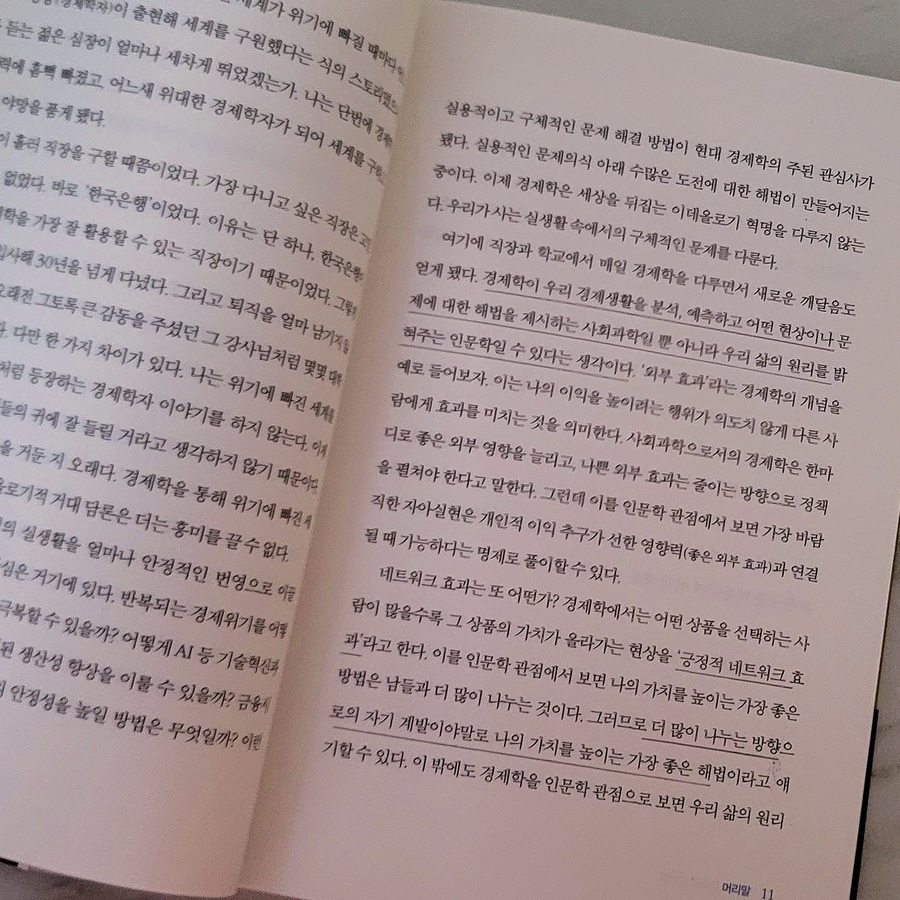 이 출현해 세계를 구원했다는 식의 스토리였으
듣는 젊은 심장이 얼마나 세차게 뛰었겠는가. 나는 단번에 경제
력에 흠뻑 빠졌고, 어느새 위대한 경제학자가 되어 세계를 구하
야망을 품게 됐다.
이 흘러 직장을 구할 때쯤이었다. 가장 다니고 싶은 직장은 고
없었다. 바로 ‘한국은행’이었다. 이유는 단 하나, 한국은행
제학을 가장 잘 활용할 수 있는 직장이기 때문이었다. 그렇게
입사해 30년을 넘게 다녔다. 그리고 퇴직을 얼마 남기지
오래전 그토록 큰 감동을 주셨던 그 강사님처럼 몇몇 대학
다만 한 가지 차이가 있다. 나는 위기에 빠진 세계를
처럼 등장하는 경제학자 이야기를 하지 않는다. 이제
들의 귀에 잘 들릴 거라고 생각하지 않기 때문이다.
을 거둔 지 오래다. 경제학을 통해 위기에 빠진 세
올로기적 거대 담론은 더는 흥미를 끌 수 없다.
의 실생활을 얼마나 안정적인 번영으로 이끌
심은 거기에 있다. 반복되는 경제위기를 어떻
극복할 수 있을까? 어떻게 AI 등 기술혁신과
된 생산성 향상을 이룰 수 있을까? 금융시
안정성을 높일 방법은 무엇일까? 이런
실용적이고 구체적인 문제 해결 방법이 현대 경제학의 주된 관심사가
됐다. 실용적인 문제의식 아래 수많은 도전에 대한 해법이 만들어지는
중이다. 이제 경제학은 세상을 뒤집는 이데올로기 혁명을 다루지 않는
다. 우리가 사는 실생활 속에서의 구체적인 문제를 다룬다.
여기에 직장과 학교에서 매일 경제학을 다루면서 새로운 깨달음도
얻게 됐다. 경제학이 우리 경제생활을 분석, 예측하고 어떤 현상이나 문
제에 대한 해법을 제시하는 사회과학일 뿐 아니라 우리 삶의 원리를 밝
혀주는 인문학일 수 있다는 생각이다. ‘외부 효과’라는 경제학의 개념을
예로 들어보자. 이는 나의 이익을 높이려는 행위가 의도치 않게 다른 사
람에게 효과를 미치는 것을 의미한다. 사회과학으로서의 경제학은 한마
디로 좋은 외부 영향을 늘리고, 나쁜 외부 효과는 줄이는 방향으로 정책
을 펼쳐야 한다고 말한다. 그런데 이를 인문학 관점에서 보면 가장 바람
직한 자아실현은 개인적 이익 추구가 선한 영향력(좋은 외부 효과)과 연결
될 때 가능하다는 명제로 풀이할 수 있다.
네트워크 효과는 또 어떤가? 경제학에서는 어떤 상품을 선택하는 사
람이 많을수록 그 상품의 가치가 올라가는 현상을 ‘긍정적 네트워크 효
과’라고 한다. 이를 인문학 관점에서 보면 나의 가치를 높이는 가장 좋은
방법은 남들과 더 많이 나누는 것이다. 그러므로 더 많이 나누는 방향으
로의 자기 계발이야말로 나의 가치를 높이는 가장 좋은 해법이라고 얘
기할 수 있다. 이 밖에도 경제학을 인문학 관점으로 보면 우리 삶의 원리
머리말 11